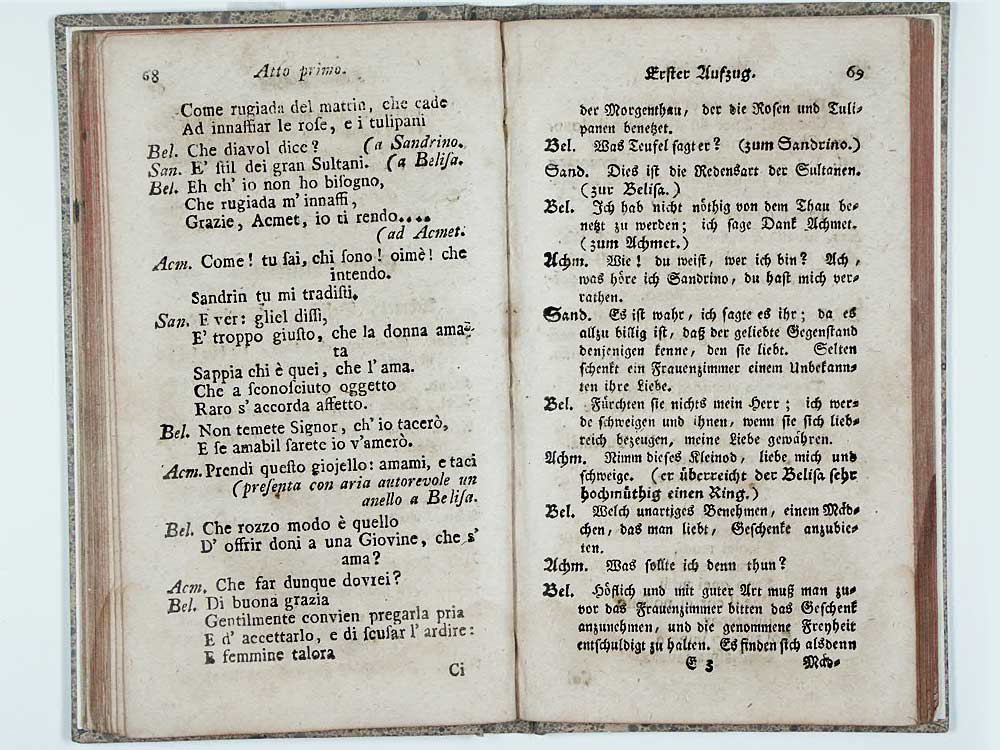 68 Atto primo.
Come rugiada del mattin, che cade
Ad innaffiar le rose, e i tulipani
Bel. Che diavol dice? (a Sandrino.
San. E' ſtil dei gran Sultani. (a Beliſa.
Bel. Eh ch' io non ho biſogno,
Che rugiada m' innaffi,
Grazie, Acmet, io ti rendo....
(ad Acmet.
Acm. Come! tu ſai, chi ſono! oimè! che
intendo.
Sandrin tu mi tradiſti.
San. E ver: gliel diſſi,
E' troppo giuſto, che la donna ama-
ta
Sappia chi è quei, che l' ama.
Che a ſconoſciuto oggetto
Raro s' accorda affetto.
Bel. Non temete Signor, ch' io tacerò,
E ſe amabil ſarete io v'amerò.
Acm. Prendi queſto giojello: amami, e taci
(preſenta con aria autorevole un
anello a Beliſa.
Bel. Che rozzo modo è quello
D' offrir doni a una Giovine, che s'
ama?
Acm. Che far dunque dovrei?
Bel. Di buona grazia
Gentilmente convien pregarla pria
E d' accettarlo, e di ſcuſar l' ardire:
E femmine talora
Ci
Erſter Aufzug. 69
der Morgenthau, der die Roſen und Tuli-
panen benetzet.
Bel. Was Teufel ſagt er? (zum Sandrino.)
Sand. Dies iſt die Redensart der Sultanen.
(zur Beliſa.)
Bel. Ich hab nicht nöthig von dem Thau be-
netzt zu werden; ich ſage Dank Achmet.
(zum Achmet.)
Achm. Wie! du weiſt, wer ich bin? Ach,
was höre ich Sandrino, du haſt mich ver-
rathen.
Sand. Es iſt wahr, ich ſagte es ihr; da es
allzu billig iſt, daß der geliebte Gegenſtand
denjenigen kenne, den ſie liebt. Selten
ſchenkt ein Frauenzimmer einem Unbekann-
ten ihre Liebe.
Bel. Fürchten ſie nichts mein Herr; ich wer-
de ſchweigen und ihnen, wenn ſie ſich lieb-
reich bezeugen, meine Liebe gewähren.
Achm. Nimm dieſes Kleinod, liebe mich und
ſchweige. (er überreicht der Beliſa ſehr
hochmüthig einen Ring.)
Bel. Welch unartiges Benehmen, einem Mäd-
chen, das man liebt, Geſchenke anzubie-
ten.
Achm. Was ſollte ich denn thun?
Bel. Höflich und mit guter Art muß man zu-
vor das Frauenzimmer bitten das Geſchenk
anzunehmen, und die genommene Freyheit
entſchuldigt zu halten. Es finden ſich alsdenn
E 3 Mäd-